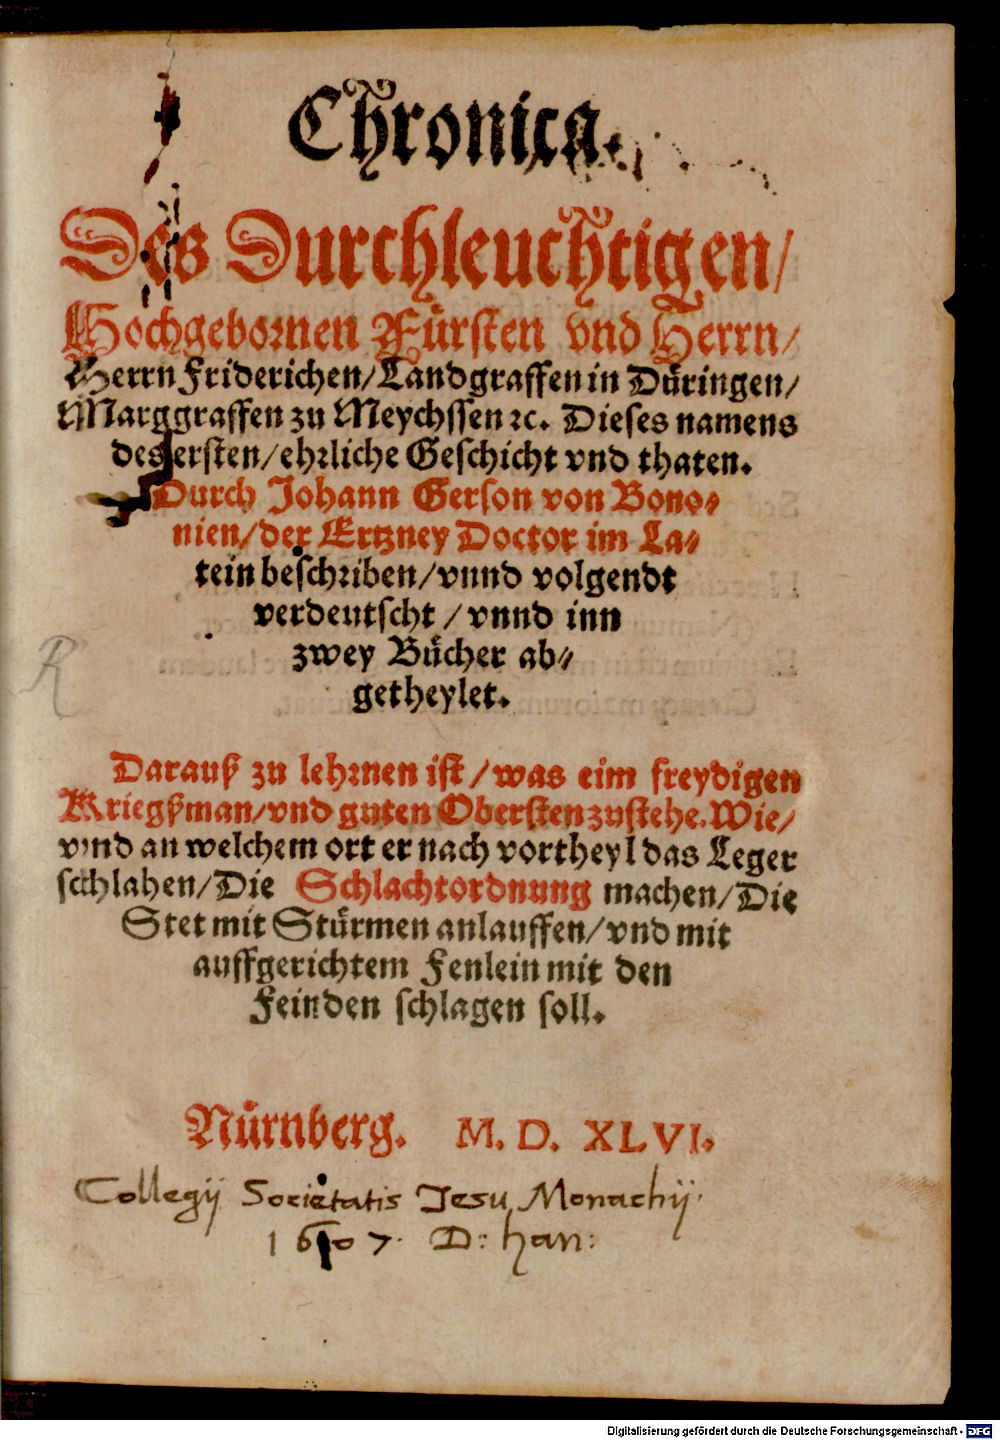 Chronica.
Des Durchleuchtigen/
Hochgebornen Fürsten vnd Herrn/
Herrn Friderichen/Landgraffen in Düringen/
Marggraffen zu Meychssen ꝛc. Dieses namens
des ersten/ehrliche Geschicht vnd thaten.
Durch Johann Gerson von Bono⸗
nien/der Ertzney Doctor im La⸗
tein beschriben/vnnd volgendt
verdeutscht/vnnd inn
zwey Bücher ab⸗
getheylet.
Darauß zu lehrnen ist/was eim freydigen
Kriegßman/vnd guten Obersten zustehe. Wie/
vnnd an welchem ort er nach vortheyl das Leger
schlahen/Die Schlachtordnung machen/Die
Stet mit Stürmen anlauffen/vnd mit
auffgerichtem Fenlein mit den
Feinden schlagen soll.
Nürnberg. M. D. XLVI.
Collegij Societatis Jesu Monachij.
1607. D: han:
R
Digitalisierung gefördert durch die Deutsche Forschungsgemeinschaft - DFG